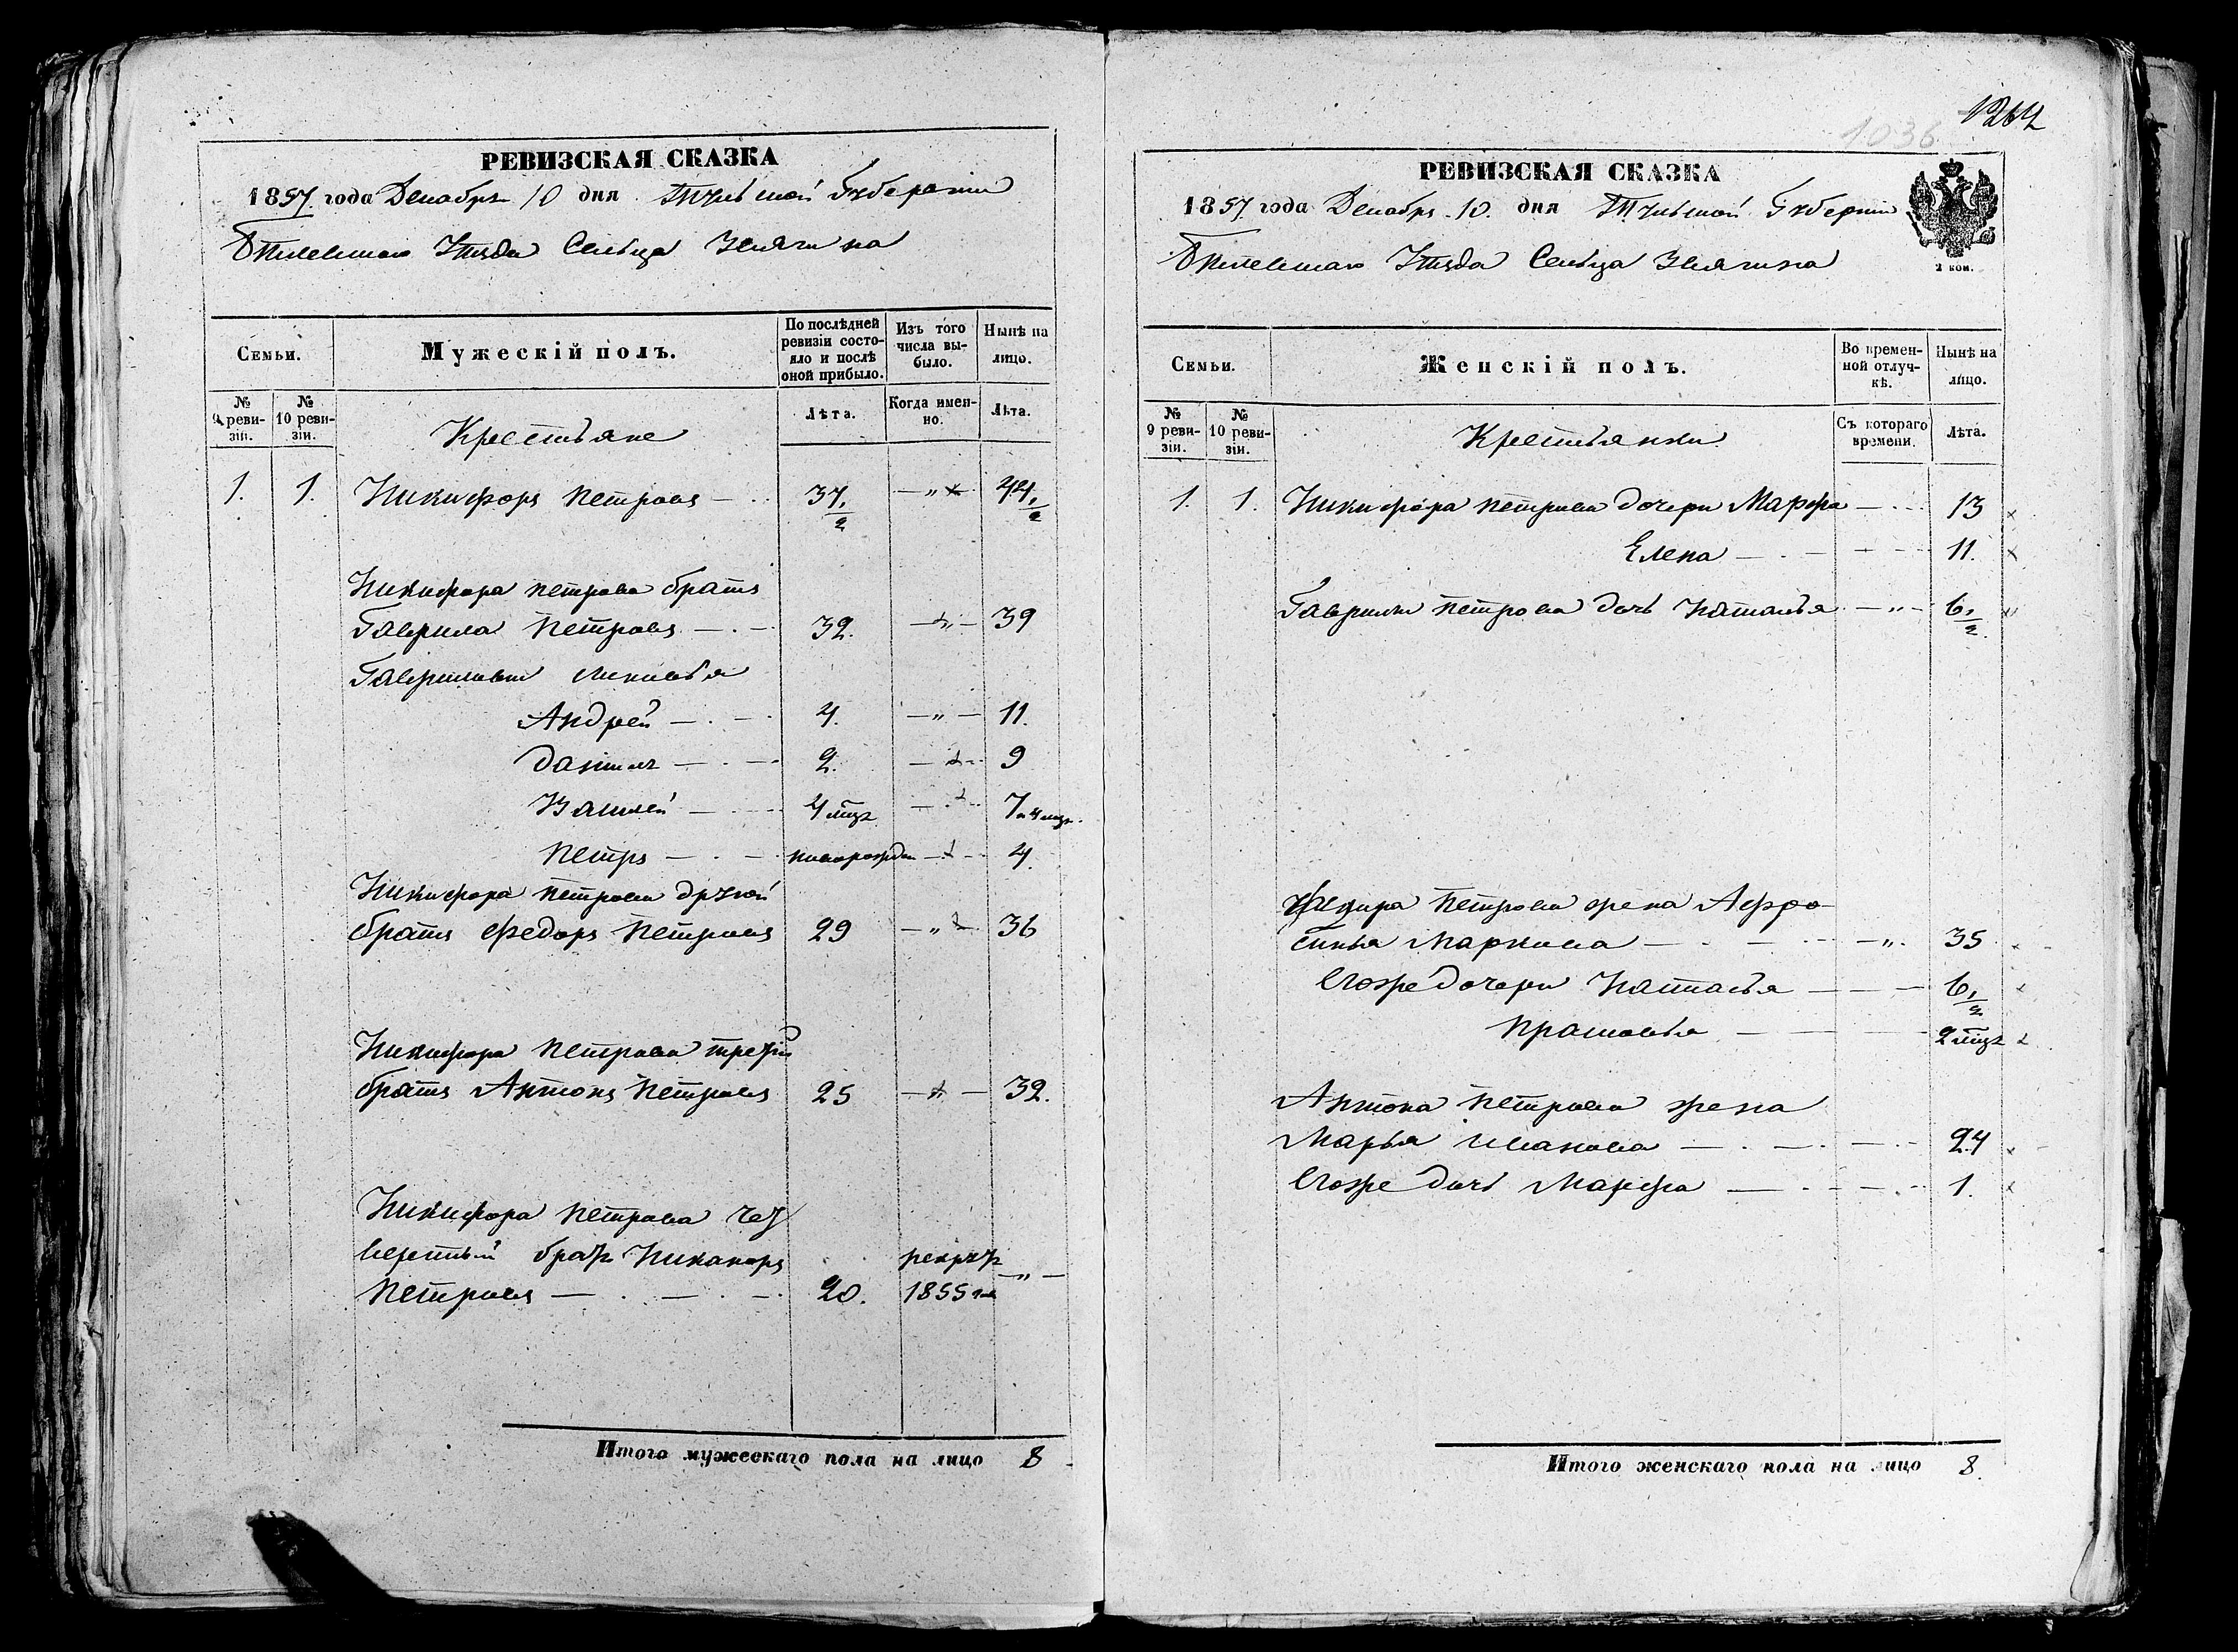 РЕВИЗСКАЯ СКАЗКА
1857 года Декабря 10 дня Тульской Губернии
Сельца
Семьи.
Мужескій полъ.
По послѣдней ревизіи состояло и послѣ оной прибыло.
Изъ того числа выбыло.
Нынѣ на лицо.
№ 9 ревизіи.
№ 10 ревизіи.
Крестьяне
Лѣта.
Когда именно.
Лѣта.
1. 1. Никифоръ Петровъ — 37 1/2 — „ — 44 1/2
Никифора Петрова братъ
Гаврила Петровъ — . — 32. — „ — 39
Гавриловы сыновья
Андрей — . — 4. — „ — 11.
Данила — . — 2. — 9
Василей — 4 мѣц 7 и 4 мѣц.
Петръ — . — новорожден — 4.
Никифора Петрова другой
братъ Федоръ Петровъ 29 — „ — 36
Никифора Петрова третій
братъ Антонъ Петровъ 25 — „ — 32.
Никифора Петрова чет
вертый братъ Никаноръ рекрутъ
Петровъ — . — . — 20. 1855 го — „ —
Итого мужескаго пола на лицо 8
1264
1036
РЕВИЗСКАЯ СКАЗКА
1857 года Декабря 10. дня Тульской Губерніи
Сельца
2 коп.
Семьи.
Женскій полъ.
Во временной отлучкѣ.
Нынѣ на лицо.
№ 9 ревизіи.
№ 10 ревизіи.
Крестьянки
Съ котораго времени.
Лѣта.
1. 1. Никифора Петрова дочери Марфа — 13
Елена — . — 11.
Гаврилы Петрова дочь Наталья — „ — 6 1/2
Федора Петрова жена Афро-
синья Маркова — . — „ . 35
Егоже дочери Наталья — 6 1/2
Прасковья — 2 мѣц
Антона Петрова жена
Марья Иванова — . — 24
Егоже дочь Марфа — . — 1.
Итого женскаго пола на лицо 8.